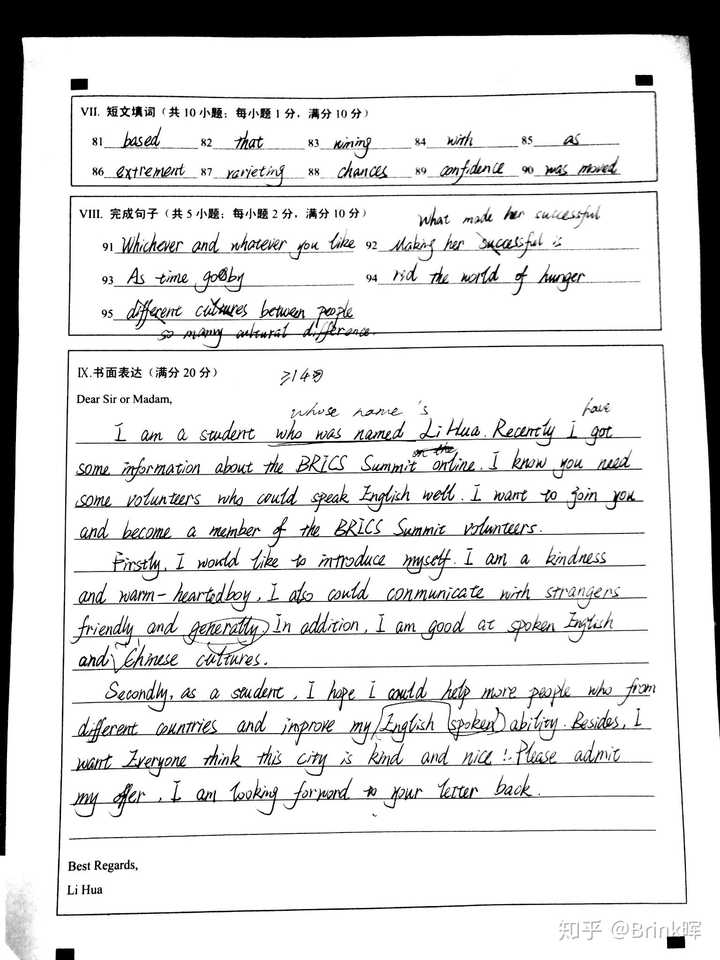 VII. 短文填词（共 10 小题；每小题 1 分，满分 10 分）
81 based 82 that 83 wining 84 with 85 as
86 extrement 87 varieting 88 chances 89 confidence 90 was moved
VIII. 完成句子（共 5 小题；每小题 2 分，满分 10 分）
What made her successful
91 Whichever and whatever you like 92 Making her successful is
93 As time go by 94 rid the world of hunger
95 different cultures between people
so many cultural difference.
IX.书面表达（满分 20 分）
Dear Sir or Madam,
whose name 's have
I am a student who was named Li Hua. Recently I got
on the
some information about the BRICS Summit online. I know you need
some volunteers who could speak English well. I want to join you
and become a member of the BRICS Summit volunteers.
Firstly, I would like to introduce myself. I am a kindness
and warm-heartedboy, I also could conmunicate with strangers
friendly and generally. In addition, I am good at spoken English
and Chinese cultures.
Secondly, as a student, I hope I could help more people who from
different countries and improve my English spoken ability. Besides, I
want Everyone think this city is kind and nice! Please admit
my offer, I am looking forword to your letter back.
Best Regards,
Li Hua
知乎 @Brink晖